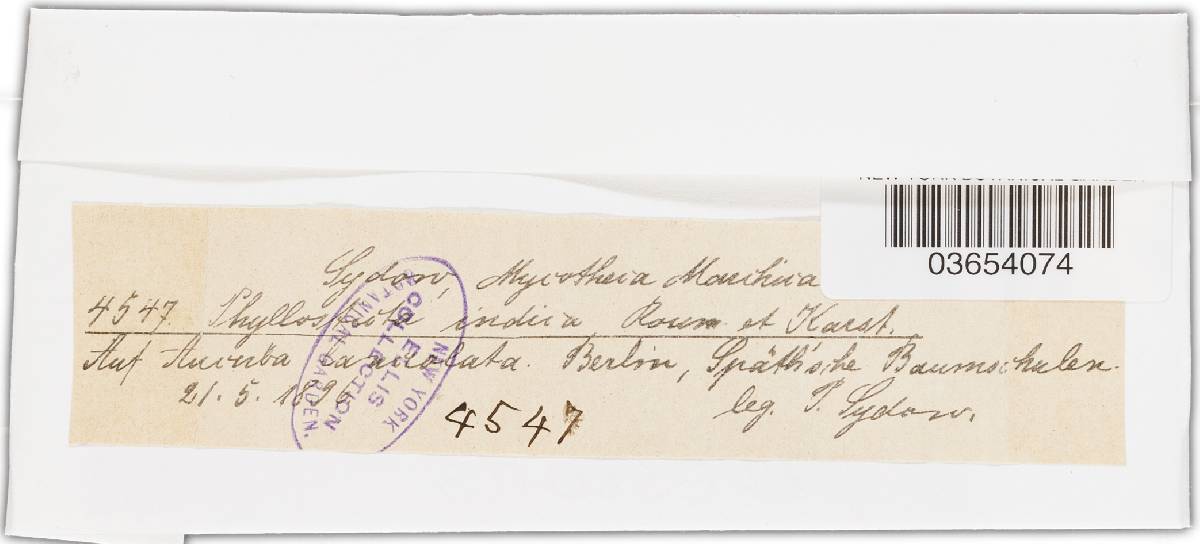 NEW YORK BOTANICAL GARDEN
03654074
Sydow, Mycotheca Marchica
4547. Phyllosticta indica Roum. et Karst.
Auf Aucuba lanceolata. Berlin, Späth'sche Baumschulen.
21. 5. 189
leg. P. Sydow.
4547
NEW YORK
ELLIS
COLLECTION
BOTANICAL GARDEN.